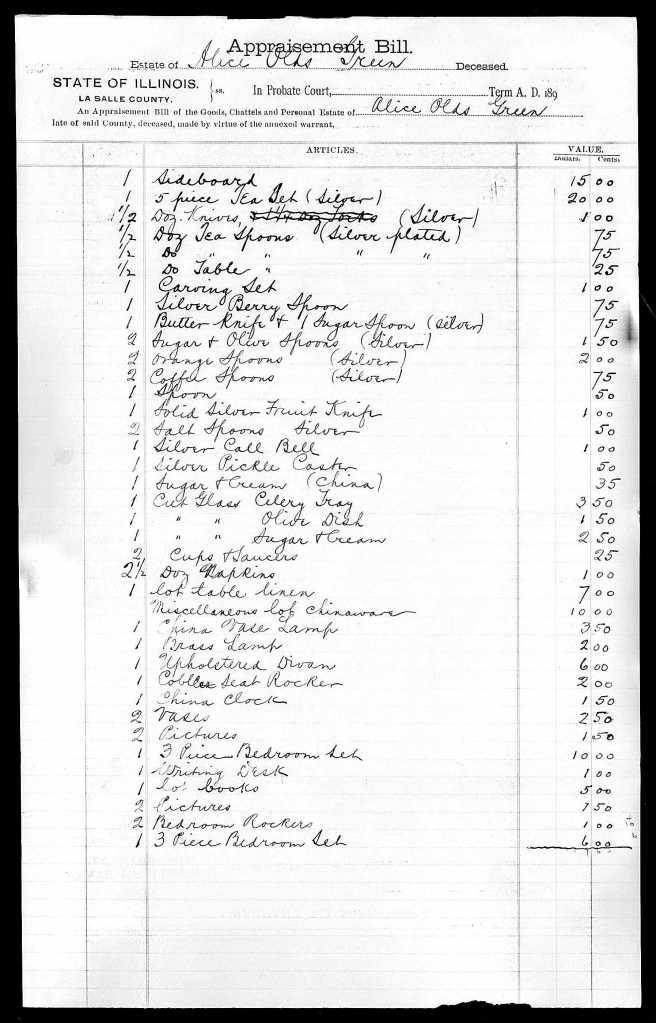 Appraisement Bill.
Estate of Alice Olds Green Deceased.
STATE OF ILLINOIS.
LA SALLE COUNTY.
ss.
In Probate Court, Term A. D. 189
An Appraisement Bill of the Goods, Chattels and Personal Estate of Alice Olds Green
late of said County, deceased, made by virtue of the annexed warrant,
ARTICLES. VALUE.
Dollars. Cents.
1 Sideboard 15 00
1 5 piece Tea Set (Silver) 20 00
1 1/2 Doz. Knives, (Silver) 1 00
1/2 Doz Tea Spoons (Silver plated) 75
1/2 Do " " " " 75
1/2 Do Table " 25
1 Carving Set 1 00
1 Silver Berry Spoon 75
1 Butter Knife & 1 Sugar Spoon (Silver) 75
2 Sugar & Olive Spoons (Silver) 1 50
2 Orange Spoons (Silver) 2 00
2 Coffee Spoons (Silver) 75
1 Spoon 50
1 Solid Silver Fruit Knife 1 00
2 Salt Spoons Silver 50
1 Silver Call Bell 1 00
1 Silver Pickle Caster 50
1 Sugar & Cream (China) 35
1 Cut Glass Celery Tray 3 50
1 " " Olive Dish 1 50
1 " " Sugar & Cream 2 50
2 Cups & Saucers 25
2 1/2 Doz Napkins 1 00
1 lot table linen 7 00
Miscellaneous lot Chinaware 10 00
1 China Vase Lamp 3 50
1 Brass Lamp 2 00
1 Upholstered Divan 6 00
1 Cobbler Seat Rocker 2 00
1 China Clock 1 50
2 Vases 2 50
2 Pictures 1 50
1 3 Piece Bedroom Set 10 00
1 Writing Desk 1 00
1 lot books 5 00
2 Pictures 1 50
2 Bedroom Rockers 1 00
1 3 Piece Bedroom Set 6 00